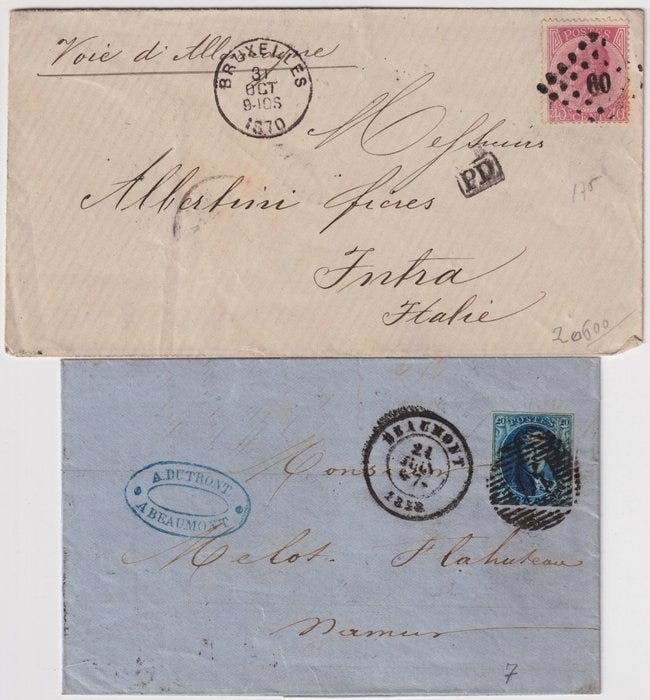 Voie d'Allemagne
BRUXELLES
31
OCT
9-10S
1870
POSTES
60
40 CENT 40
Messieurs
PD
Albertini frères
175
Intra
Italie
20600
BEAUMONT
21
1858
20 POSTES 20
A. DUTRONT
A BEAUMONT
Monsieur
Melot. Flahuteau
Namur
7